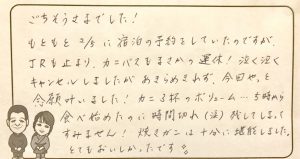 ごちそうさまでした!
もともと2/5に宿泊の予約をしていたのですが、
JRも止まり、カニバスもまさかの運休!泣く泣く
キャンセルしましたがあきらめきれず、今回やっと
念願叶いました!カニ3杯のボリューム…5時から
食べ始めたのに時間切れ(泣)残してしまって
すみません!焼きガニは十分に堪能しました。
とてもおいしかったです。